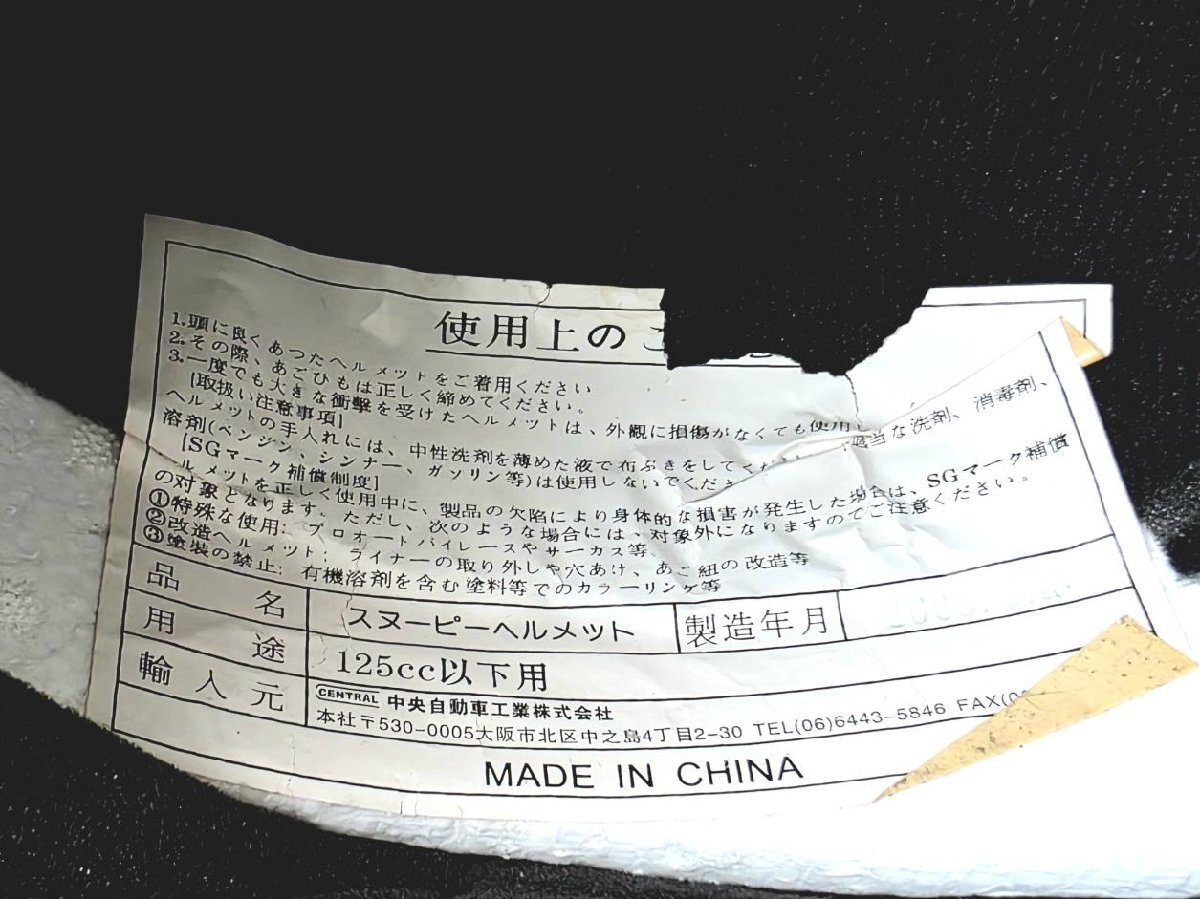 使用上のご
1.頭に良くあつたヘルメットをご着用ください
2.その際、あごひもは正しく締めてください。
3.一度でも大きな衝撃を受けたヘルメットは、外観に損傷がなくても使用し
[取扱い注意事項]
ヘルメットの手入れには、中性洗剤を薄めた液で布ぶきをしてくださ 適当な洗剤、消毒剤、
溶剤(ベンジン、シンナー、ガソリン等)は使用しないでくださ
[SGマーク補償制度]
ヘルメットを正しく使用中に、製品の欠陥により身体的な損害が発生した場合は、SGマーク補償
の対象となります。ただし、次のような場合には、対象外になりますのでご注意ください。
①特殊な使用: プロオートバイレースやサーカス等。
②改造ヘルメット: ライナーの取り外しや穴あけ、あご組の改造等
③塗装の禁止: 有機溶剤を含む塗料等でのカラーリング等
品名 スヌーピーヘルメット 製造年月
用途 125cc以下用
輸入元 CENTRAL 中央自動車工業株式会社
本社〒530-0005大阪市北区中之島4丁目2-30 TEL(06)6443-5846 FAX(0
MADE IN CHINA